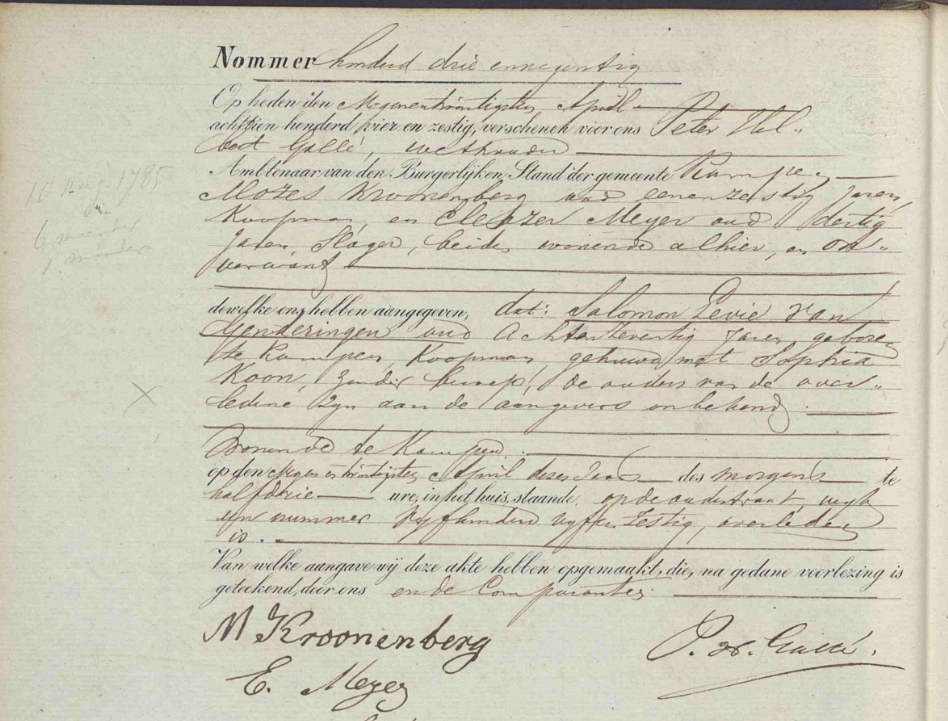 Nommer honderd drie ennegentig
Op heden den Negenentwintigsten April
achttien honderd vier en zestig, verschenen voor ons Peter Hel„
bert Gallé, wethouder
Ambtenaar van den Burgerlijken Stand der gemeente Kampen
Mozes Kroonenberg oud eenenzestig Jaren,
Koopman, en Eleazer Meyer oud dertig
Jaren Slager, beide wonende alhier, en on„
verwant
dewelke ons hebben aangegeven, dat: Salomon Levie van
Genderingen oud Achtenzeventig Jaren geboren
te Kampen, Koopman gehuwd met Sophia
Koon, zonder beroep, de ouders van de over„
ledene zyn aan de aangevers onbekend
Wonende te Kampen
op den Negen en twintigsten April dezes Jaars des morgens te
halfdrie ure, in het huis, staande op de oudestraat, wyk
nummer Vyfhonderd vyfenzestig, overleden
is.
Van welke aangave wij deze akte hebben opgemaakt, die, na gedane voorlezing is
geteekend, door ons en de Comparanten
M Kroonenberg
P. H. Gallé.
E. Meyer
10 Aug. 1785
6 maanden